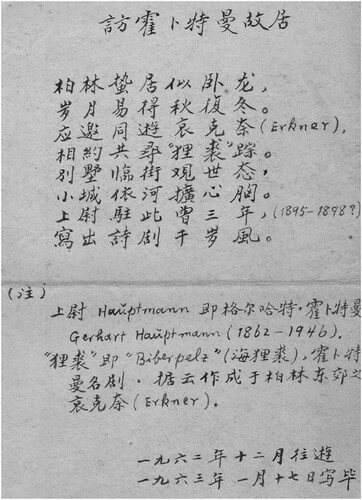 訪霍卜特曼故居
柏林蛰居似卧龙,
岁月易得秋復冬。
应邀同遊哀克奈(Erkner),
相約共尋"狸裘"踪。
別墅臨街观世态,
小城依河擴心胸。
上尉駐此曾三年,(1895-1898?)
寫出詩剧千岁風。
(注)
上尉 Hauptmann 即格尔哈特·霍卜特曼
Gerhart Hauptmann (1862-1946).
"狸裘"即"Biberpelz"(海狸裘),霍卜特
曼名剧.据云作成于柏林东郊之
哀克奈(Erkner).
一九六二年十二月往遊
一九六三年一月十七日写毕